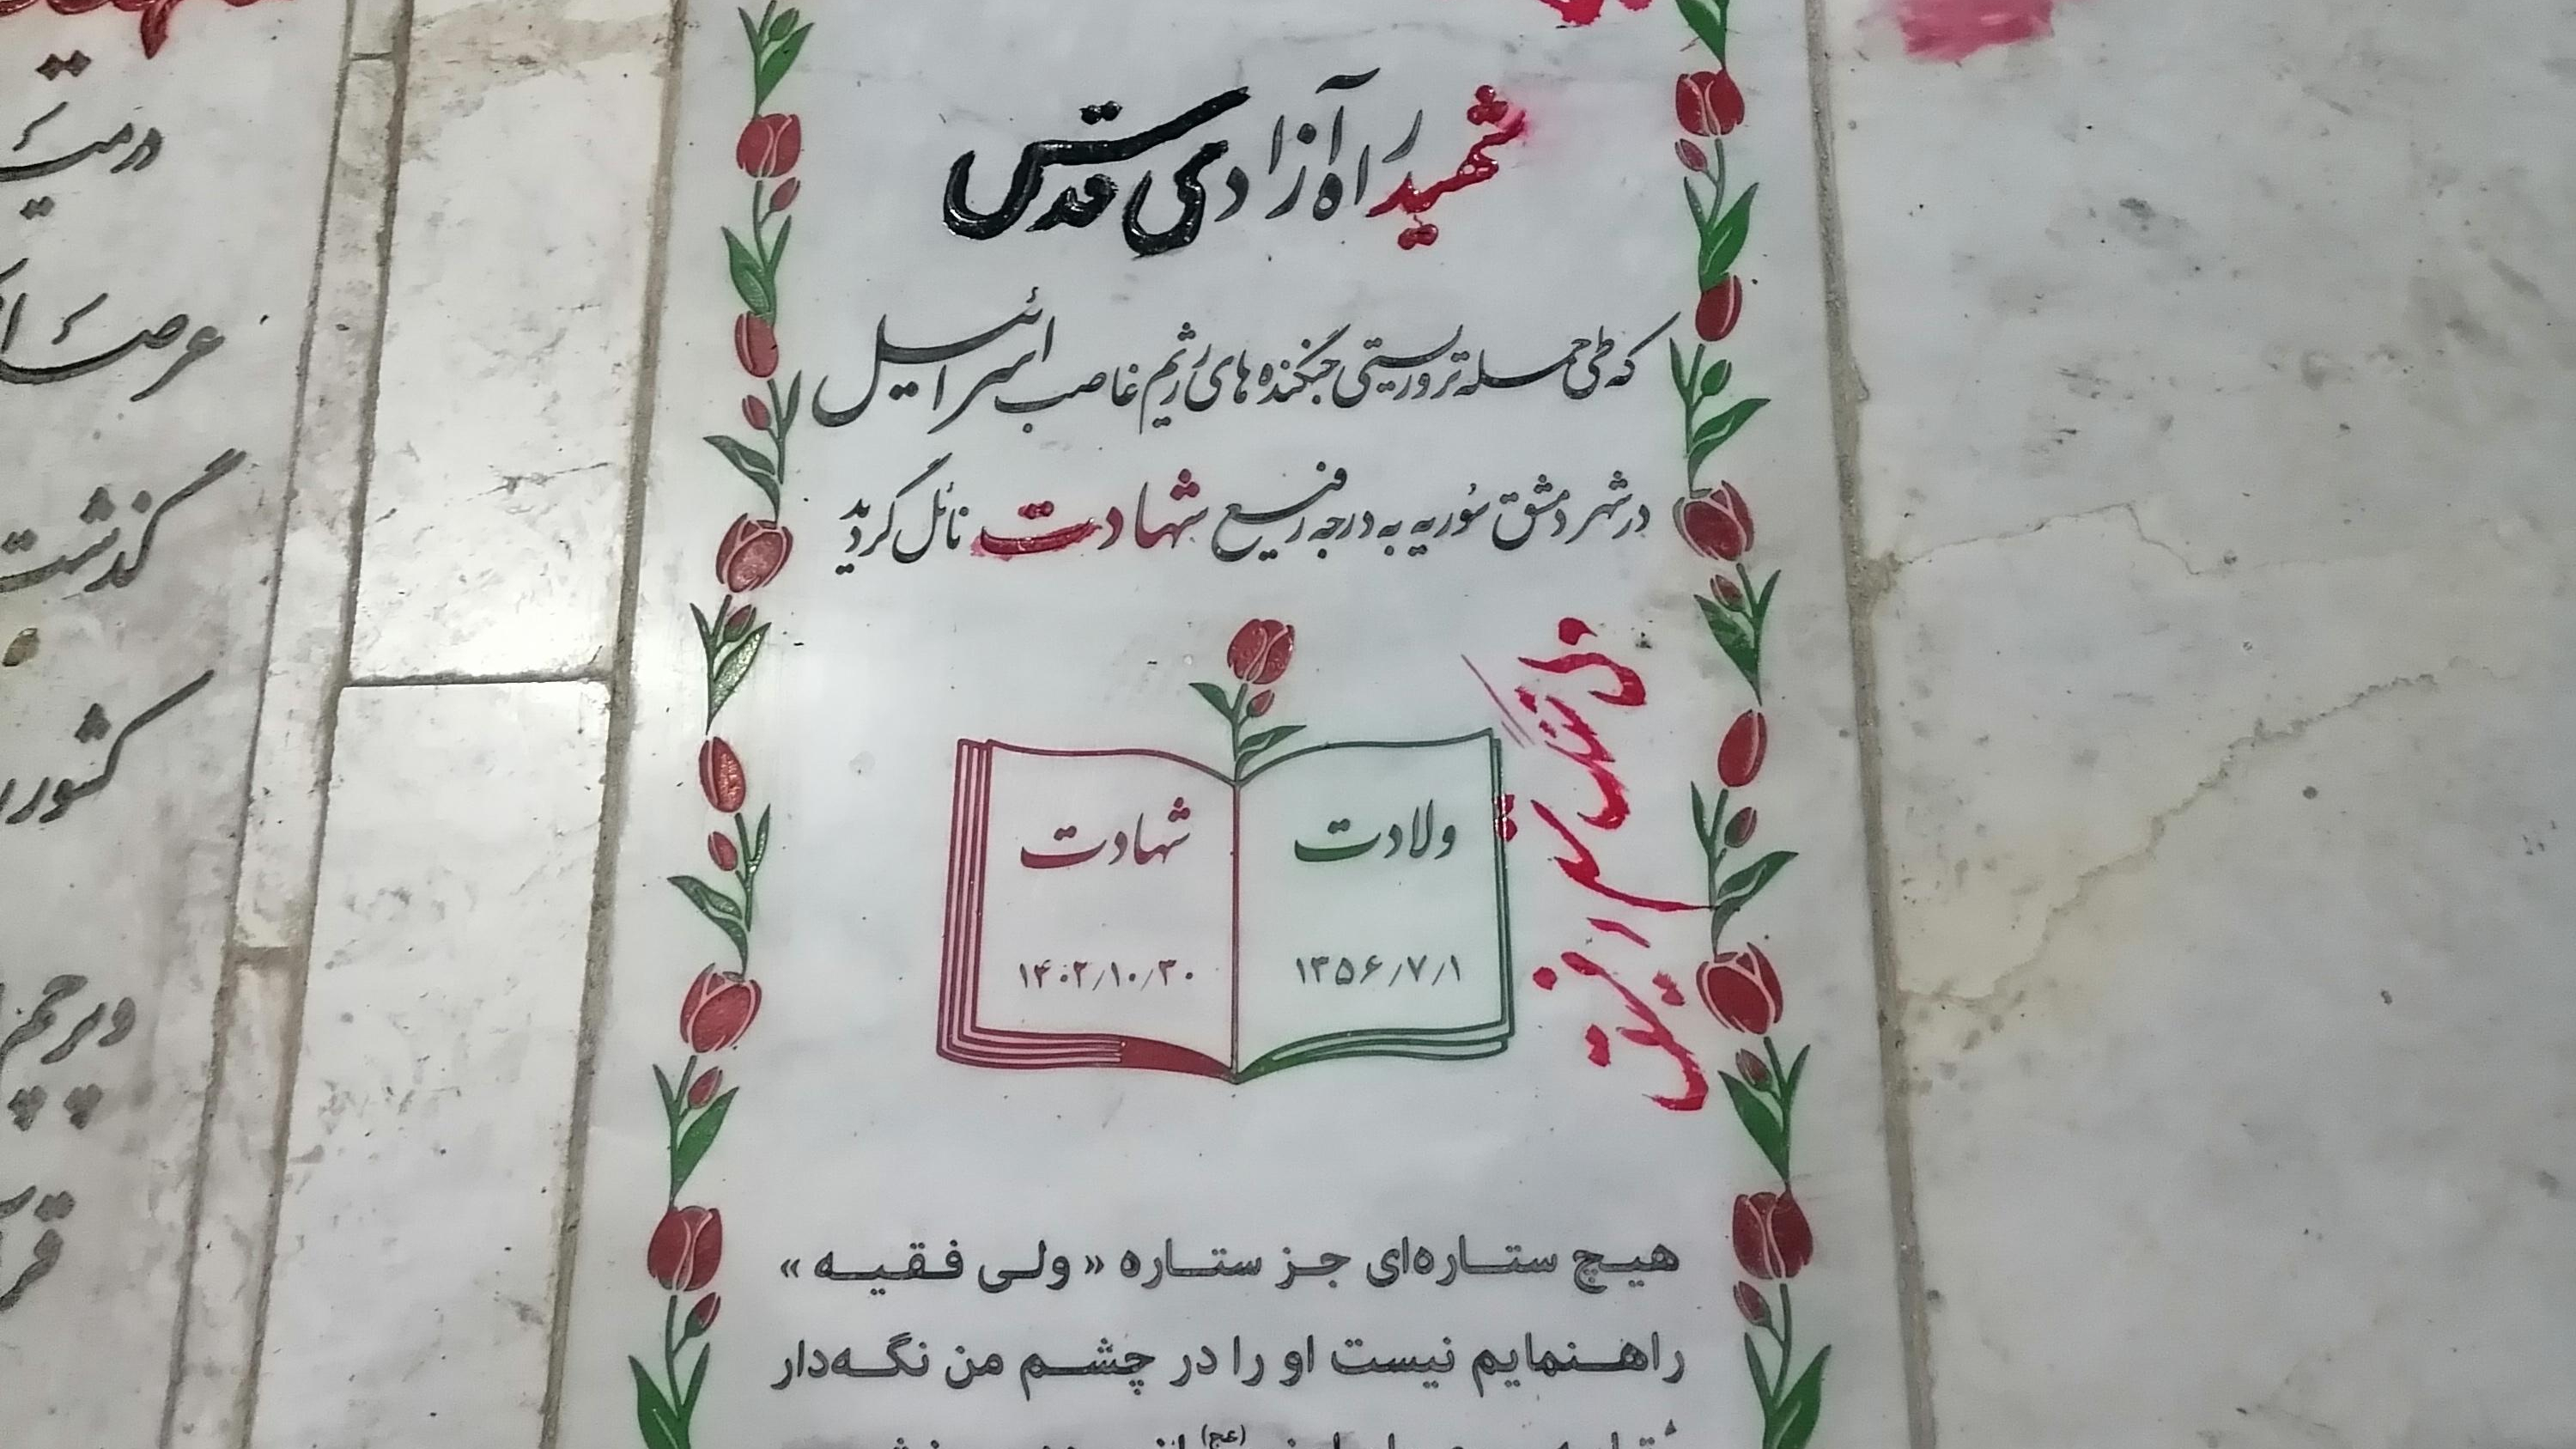 شهید راه آزادی قدس
که طی حمله تروریستی جنگنده های رژیم غاصب اسرائیل
در شهر دمشق سوریه به درجه رفیع شهادت نائل گردید
ولادت
۱۳۵۶/۷/۱
شهادت
۱۴۰۲/۱۰/۳۰
دلتنگیم رفیق
هیچ ستاره‌ای جز ستاره «ولی فقیه»
راهنمایم نیست او را در چشم من نگه‌دار
(عج)
درمیـ
عرصۀ
گذشت
کشور
و پرچم